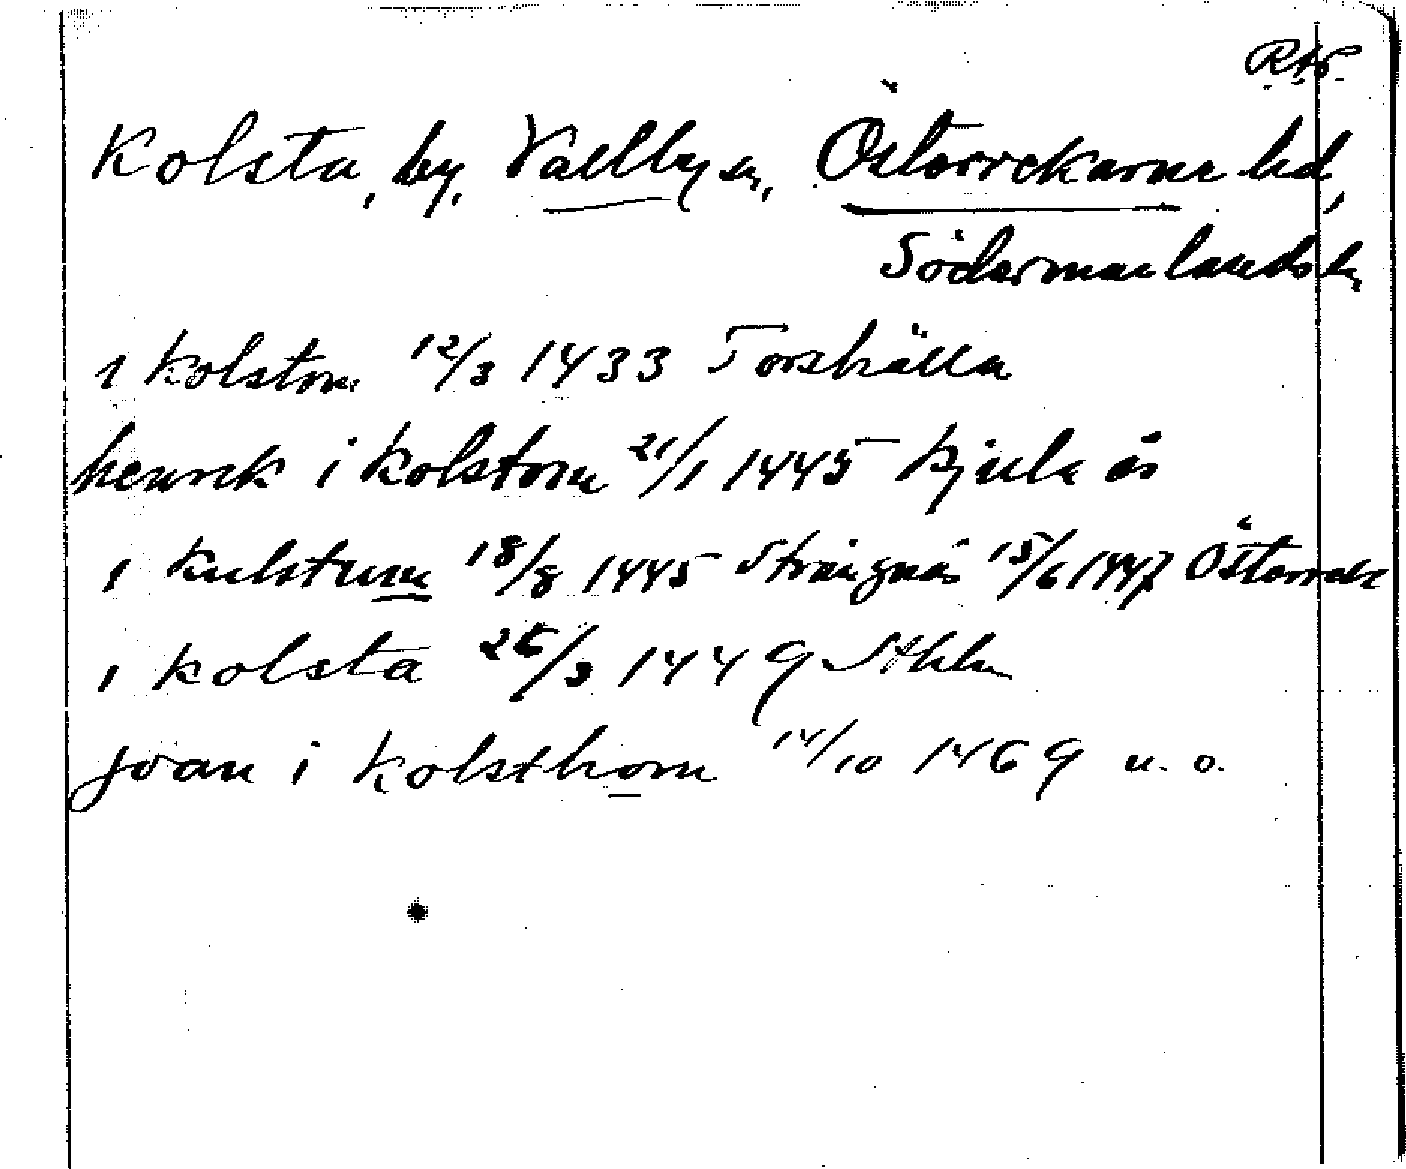 RAP.
Kolsta, by, Vallby sn, Österrekarne hd,
Södermanlands l.
i kolstom 12/3 1433 Torshälla
henrek i kolstom 21/1 1445 Kjula ås
i kulstum 18/8 1445 Strängnäs 15/6 1447 Österrek
i kolsta /3 1449 Sthlm
joan i kolsthom 14/10 1469 u. o.